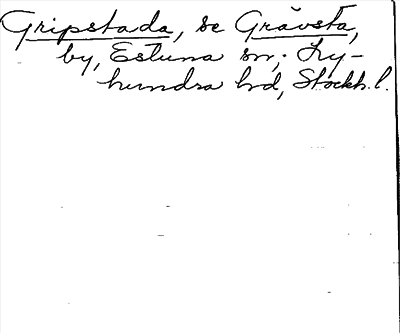 Gripstada, se Grävsta,
by, Estuna sn, Ly-
hundra hd, Stockh. l.